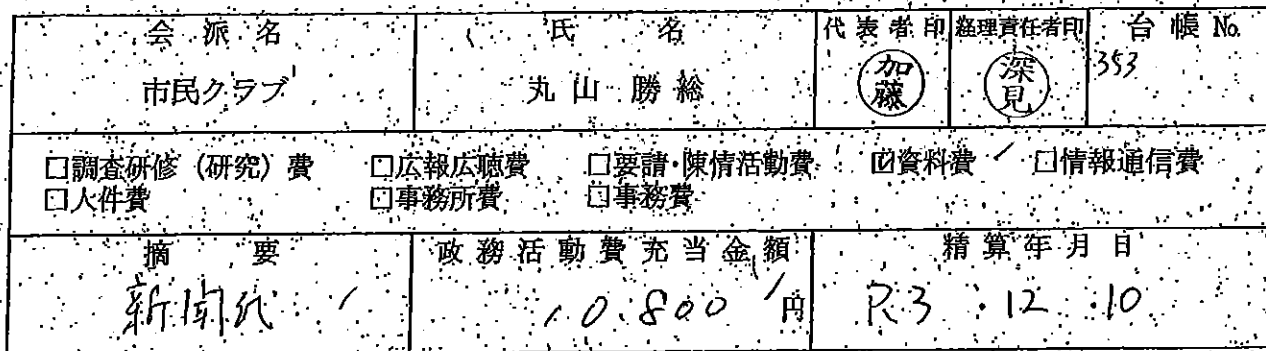 会派名 氏名 代表者印 経理責任者印 台帳 No.
市民クラブ 丸山 勝総 加藤 深見 353
□調査研修(研究)費 □広報広聴費 □要請・陳情活動費 ☑資料費 □情報通信費
□人件費 □事務所費 □事務費
摘要 政務活動費充当金額 精算年月日
新聞代 10.800円 R.3.12.10